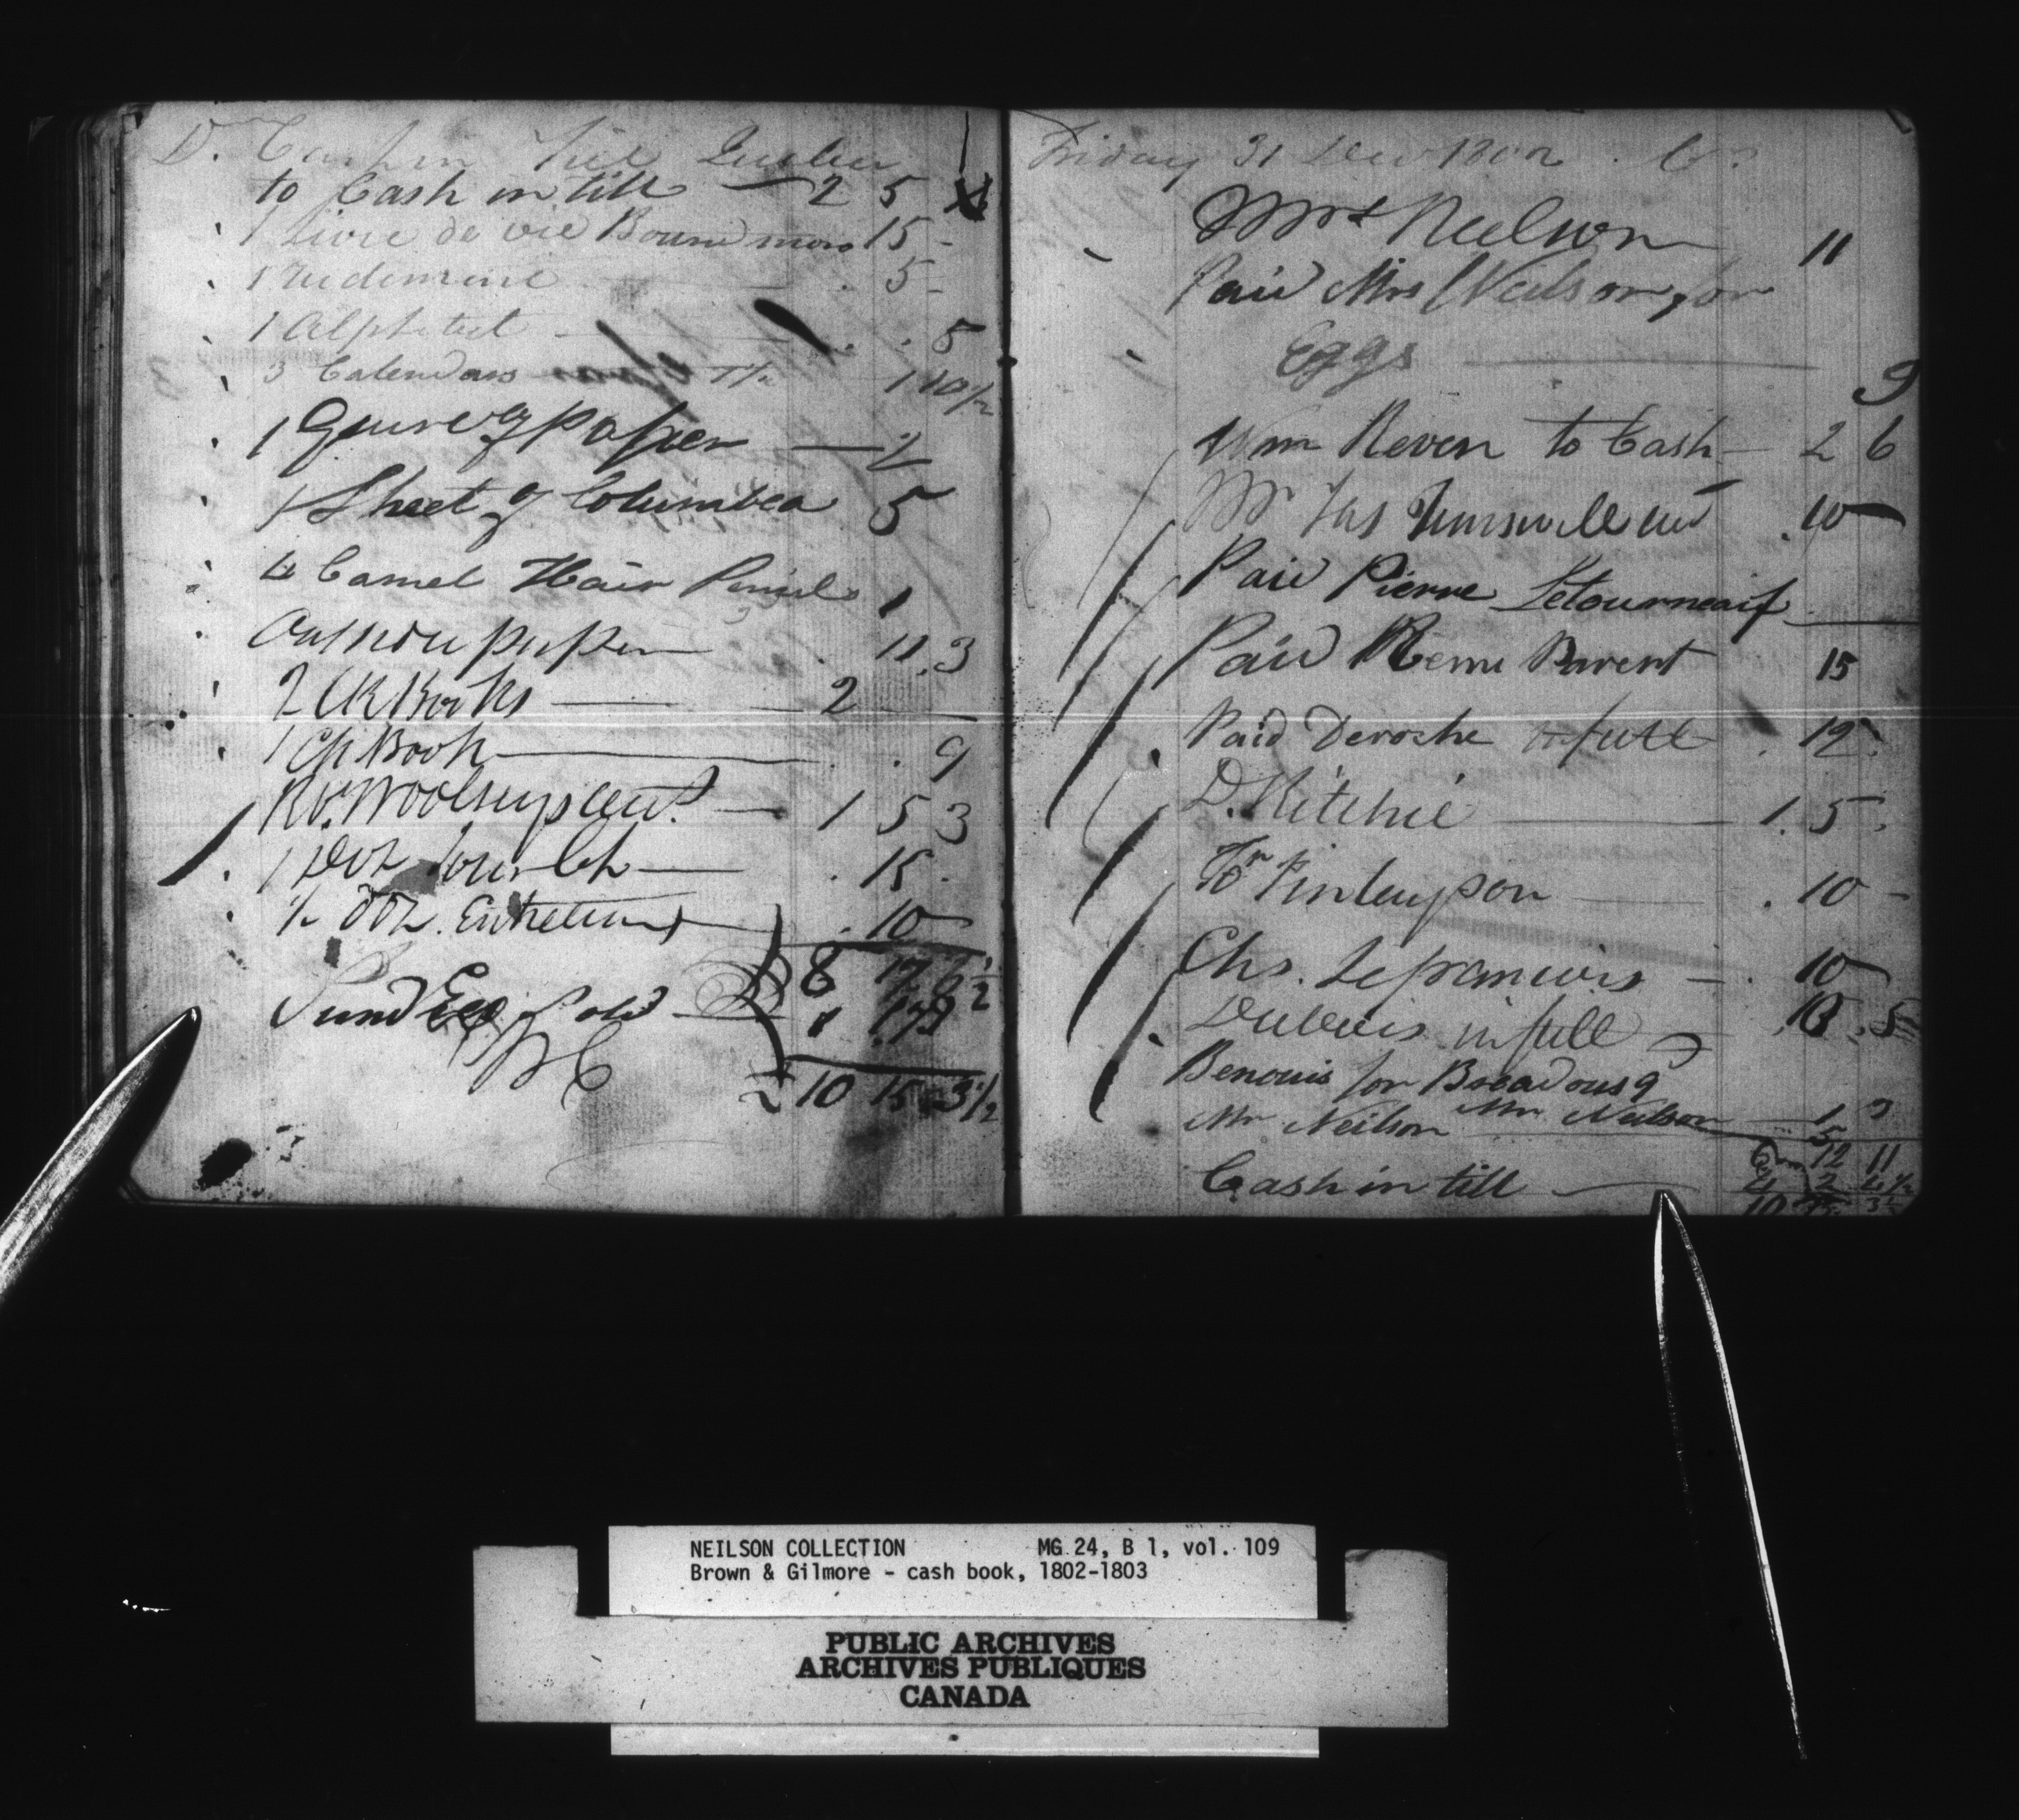 Dr. Cash in Till Quebec
to Cash in till — 2 5
1 Livre de vie Bound 15 -
1 Rudiment 5 -
1 Alphabet — . . 5
3 Calendars 7½ 1 10½
1 Quire of paper —
1 Sheet of Columbia 5
4 Camel Hair Pencils 1
paper . 11.3
2 Books — 2
1 Book — . . 9
Woolsey — 1 5 3
1 Doz — . 15 .
½ doz. — . 10
8 17 6½
Sund Sold — 1 17 9
10 15 3½
Friday 31 Decr 1802 . Cr.
Mrs Neilson 11
Paid Mrs Neilson for
Eggs — 9
Wm Reven to Cash — 2 6
Mr . 10 —
Paid Pierre Letourneau —
Paid Remi Parent 15
Paid Deroche in full . 12.
D. Ritchie — 1. 5.
Finlayson — . 10 -
Chs. Lefrancois — . 10
in full
for Bread
Mr Neilson Mr Neilson 1 3
12 11
Cash in till — 4 2 4½
10 15 3½
NEILSON COLLECTION MG 24, B 1, vol. 109
Brown & Gilmore - cash book, 1802-1803
PUBLIC ARCHIVES
ARCHIVES PUBLIQUES
CANADA